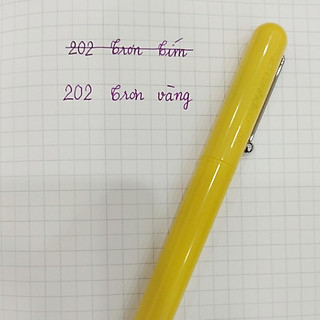 202 Trơn tím
202 Trơn vàng